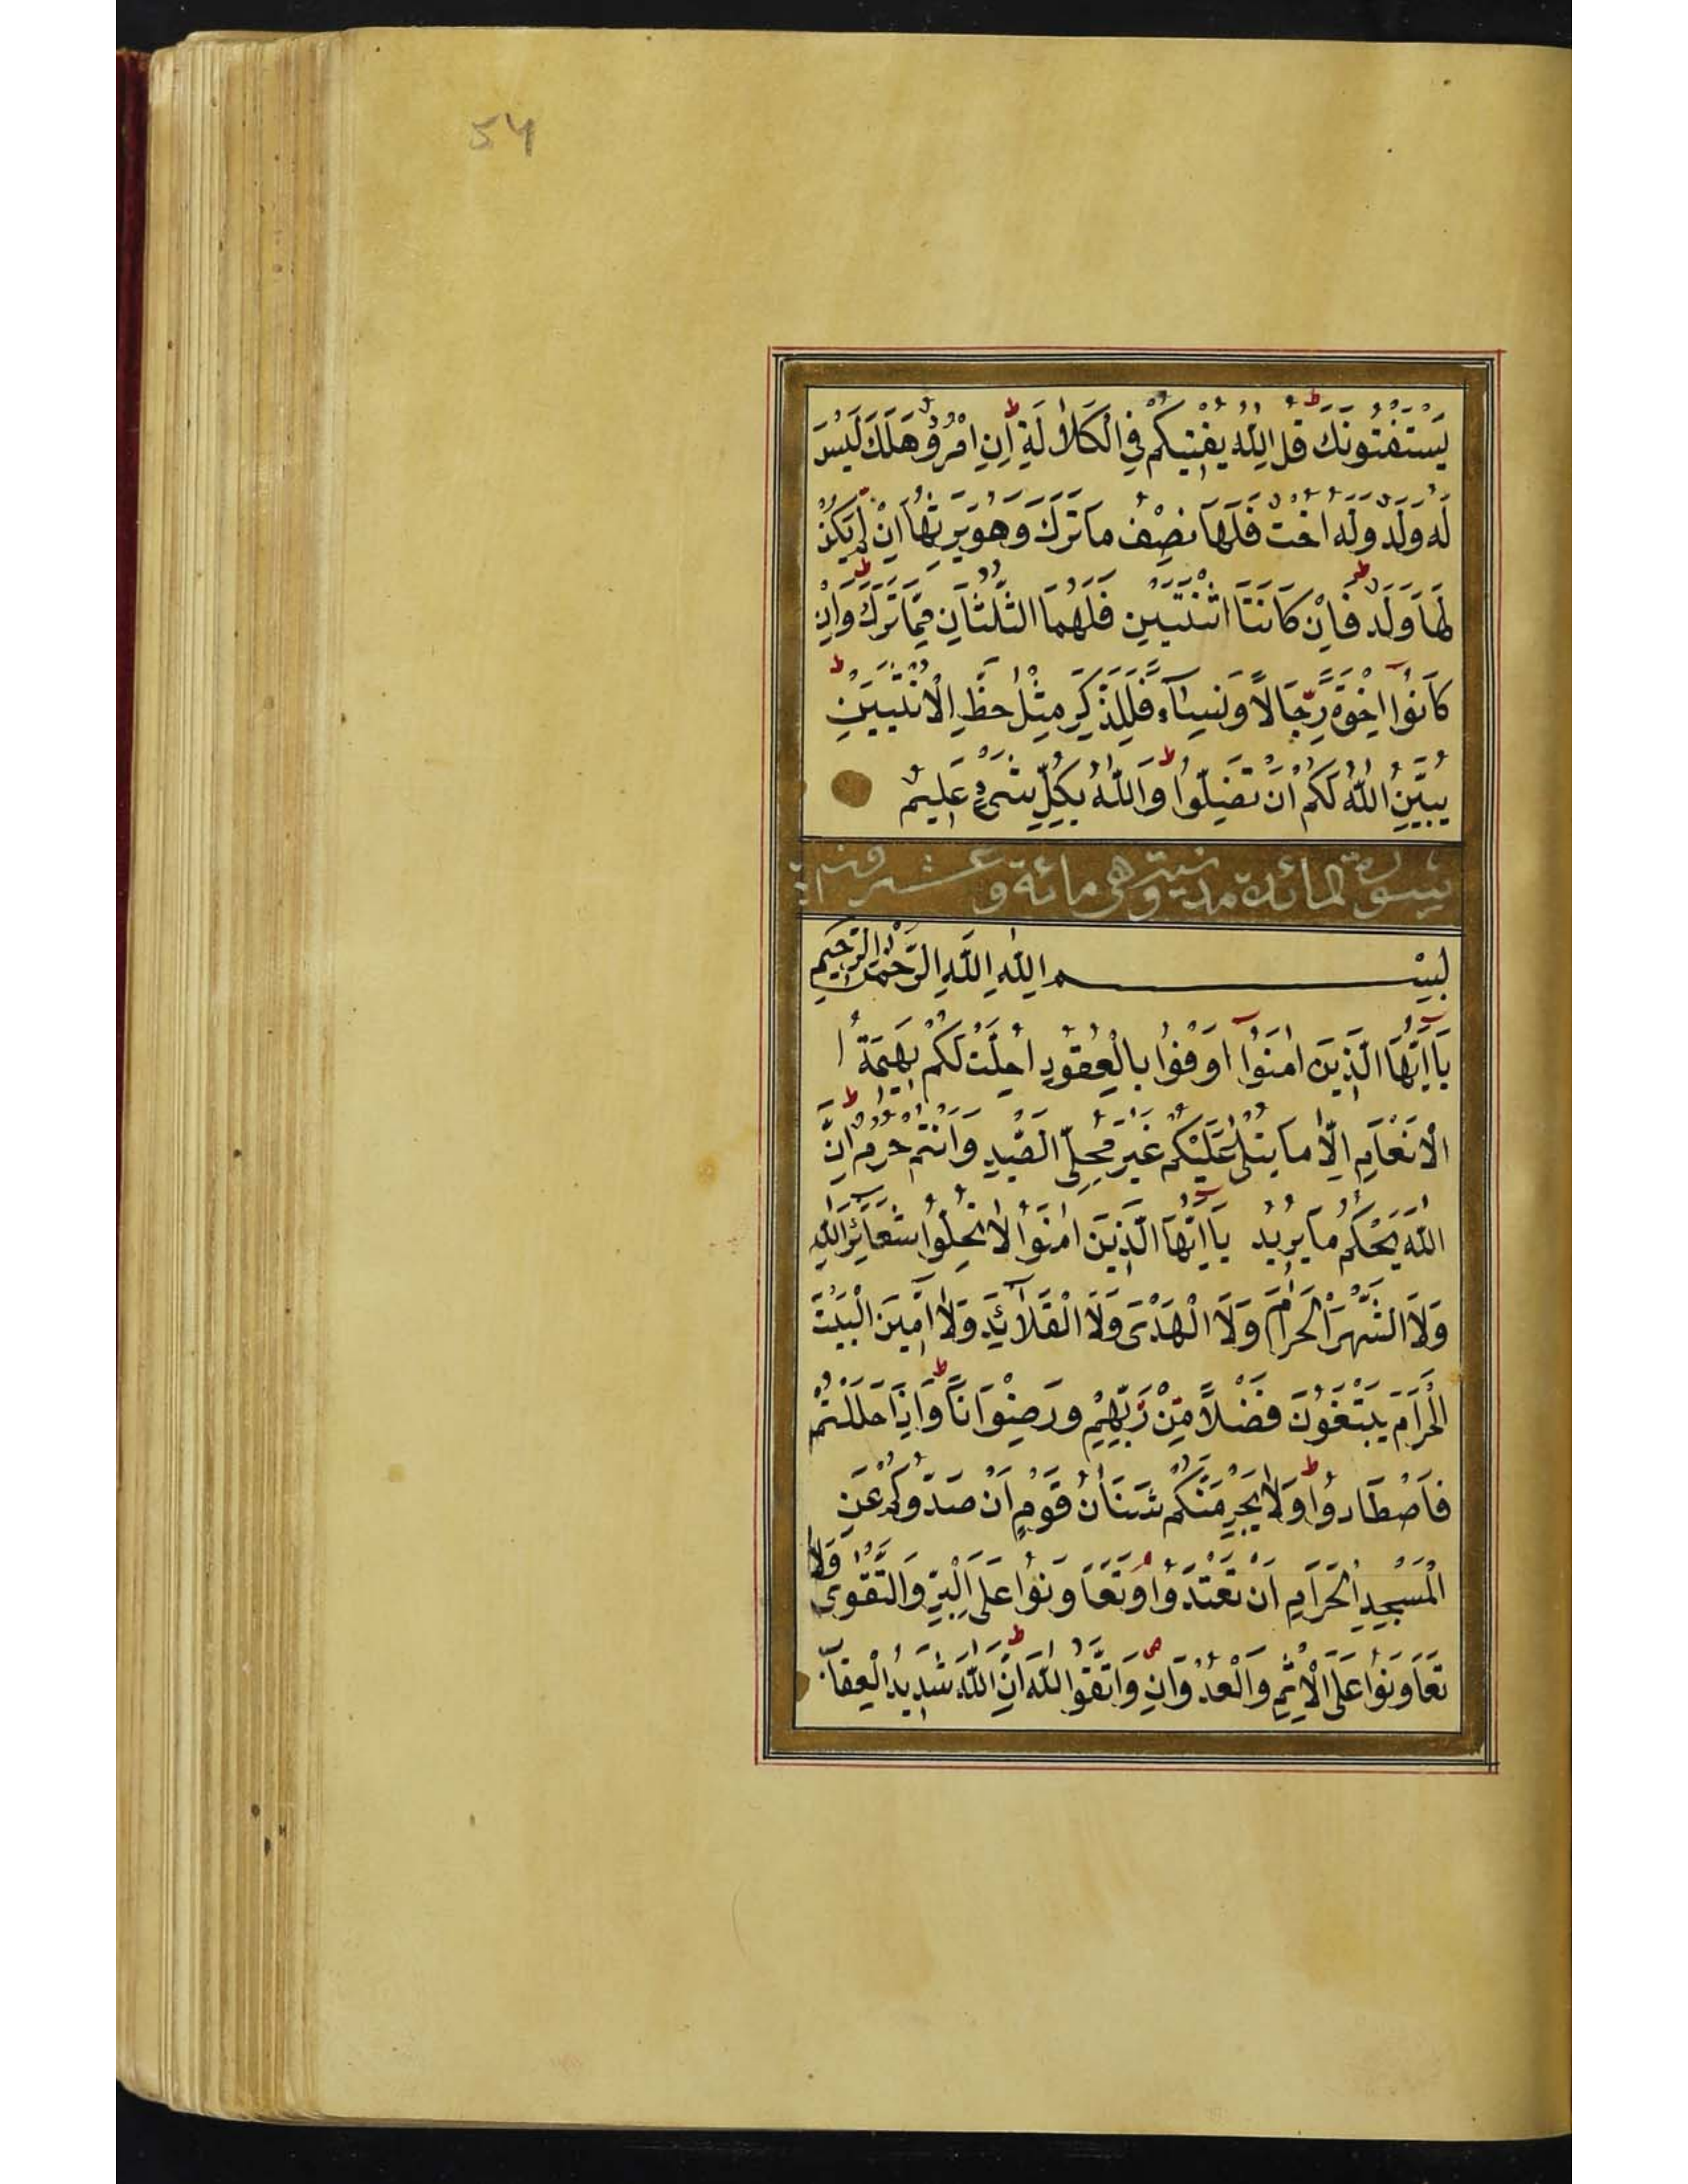 54
يَسْتَفْتُونَكَ قُلِ اللّٰهُ يُفْتِيكُمْ فِي الْكَلَالَةِ ط اِنِ امْرُؤٌ هَلَكَ لَيْسَ
لَهُ وَلَدٌ وَلَهُ اُخْتٌ فَلَهَا نِصْفُ مَا تَرَكَ وَهُوَ يَرِثُهَا اِنْ لَمْ يَكُنْ
لَهَا وَلَدٌ ط فَاِنْ كَانَتَا اثْنَتَيْنِ فَلَهُمَا الثُّلُثَانِ مِمَّا تَرَكَ ط وَاِنْ
كَانُوٓا اِخْوَةً رِّجَالًا وَنِسَآءً فَلِلذَّكَرِ مِثْلُ حَظِّ الْاُنْثَيَيْنِ ط
يُبَيِّنُ اللّٰهُ لَكُمْ اَنْ تَضِلُّوا ط وَاللّٰهُ بِكُلِّ شَىْءٍ عَلِيمٌ
سورة المائدة مدنية وهي مائة وعشرون
بِسْمِ اللّٰهِ اللّٰهِ الرَّحْمٰنِ الرَّحِيمِ
يَآ اَيُّهَا الَّذِينَ اٰمَنُوٓا اَوْفُوا بِالْعُقُودِ اُحِلَّتْ لَكُمْ بَهِيمَةُ ا
الْاَنْعَامِ اِلَّا مَا يُتْلٰى عَلَيْكُمْ غَيْرَ مُحِلِّي الصَّيْدِ وَاَنْتُمْ حُرُمٌ ط اِنَّ
اللّٰهَ يَحْكُمُ مَا يُرِيدُ يَآ اَيُّهَا الَّذِينَ اٰمَنُوا لَا تُحِلُّوا شَعَآئِرَ اللّٰهِ
وَلَا الشَّهْرَ الْحَرَامَ وَلَا الْهَدْىَ وَلَا الْقَلَآئِدَ وَلَا اٰمِّينَ الْبَيْتَ
الْحَرَامَ يَبْتَغُونَ فَضْلًا مِّنْ رَّبِّهِمْ وَرِضْوَانًا ط وَاِذَا حَلَلْتُمْ
فَاصْطَادُوا ط وَلَا يَجْرِمَنَّكُمْ شَنَاٰنُ قَوْمٍ اَنْ صَدُّوكُمْ عَنِ
الْمَسْجِدِ الْحَرَامِ اَنْ تَعْتَدُوا م وَتَعَاوَنُوا عَلَى الْبِرِّ وَالتَّقْوٰى وَلَا
تَعَاوَنُوا عَلَى الْاِثْمِ وَالْعُدْوَانِ ص وَاتَّقُوا اللّٰهَ ط اِنَّ اللّٰهَ شَدِيدُ الْعِقَابِ